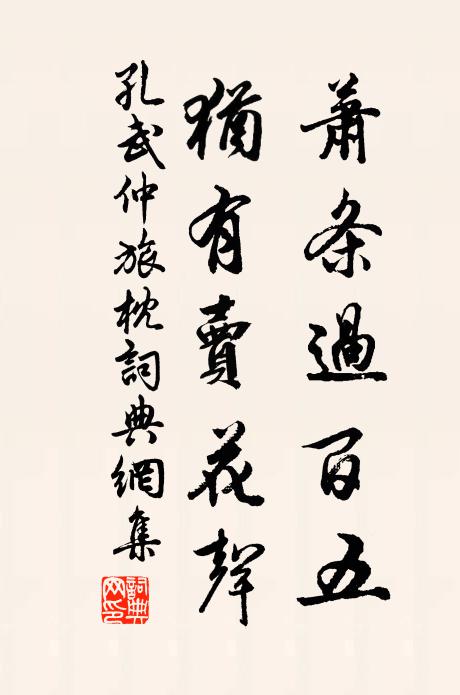 蕭条過百五
猶有賣花聲
孔武仲旅枕詞典網集
詞典網印